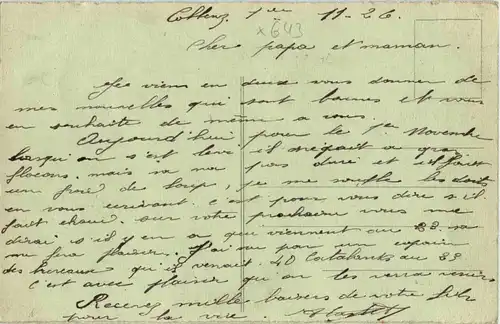 Coblenz, 1er 11-26
x643
Cher papa et maman.
Je viens en deux vous donner de
mes nouvelles qui sont bonnes et vous
en souhaite de même a vous.
Aujourd'hui pour le 1er Novembre
lorsqu'on s'est levé il neigeait a gros
flocons. mais sa na pas duré et il fait
un froid de loup, je me souffle les doits
en vous ecrivant. c'est pour vous dire s'il
fait chaud. sur votre prochaine vous me
dirai s'il y en a qui viennent au 23. sa
me fera plaisir. J'ai su par un copain
des bureaux qu'il venait 40 Catalants au 23
c'est avec plaisir qu'on les verra venirs
Recevez mille baisers de votre fils
pour la vie.